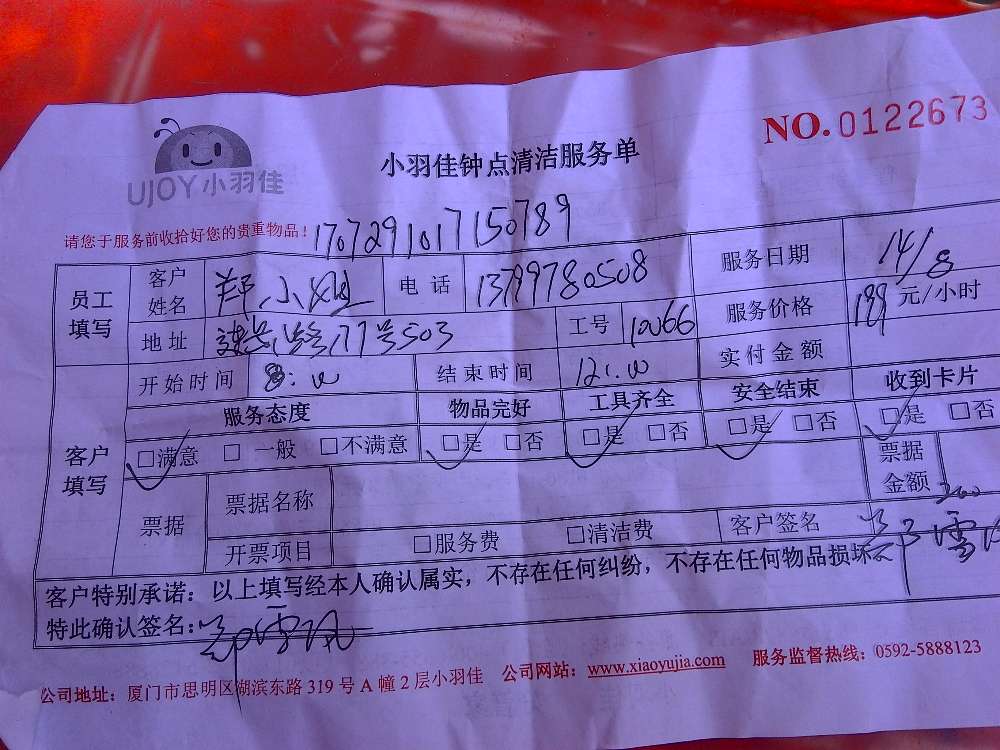 NO.0122673
UJOY小羽佳
小羽佳钟点清洁服务单
请您于服务前收拾好您的贵重物品！
1707291017150789
员工填写 客户姓名 郑小姐 电话 13799780508 服务日期 14/8
地址 77号503 工号 10066 服务价格 元/小时
客户填写 开始时间 8:00 结束时间 12:00 实付金额
服务态度 物品完好 工具齐全 安全结束 收到卡片
□满意 □一般 □不满意 □是 □否 □是 □否 □是 □否 □是 □否
票据 票据名称 票据金额
开票项目 □服务费 □清洁费 客户签名
客户特别承诺：以上填写经本人确认属实，不存在任何纠纷，不存在任何物品损坏
特此确认签名：
公司地址：厦门市思明区湖滨东路319号A幢2层小羽佳 公司网站：www.xiaoyujia.com 服务监督热线：0592-5888123